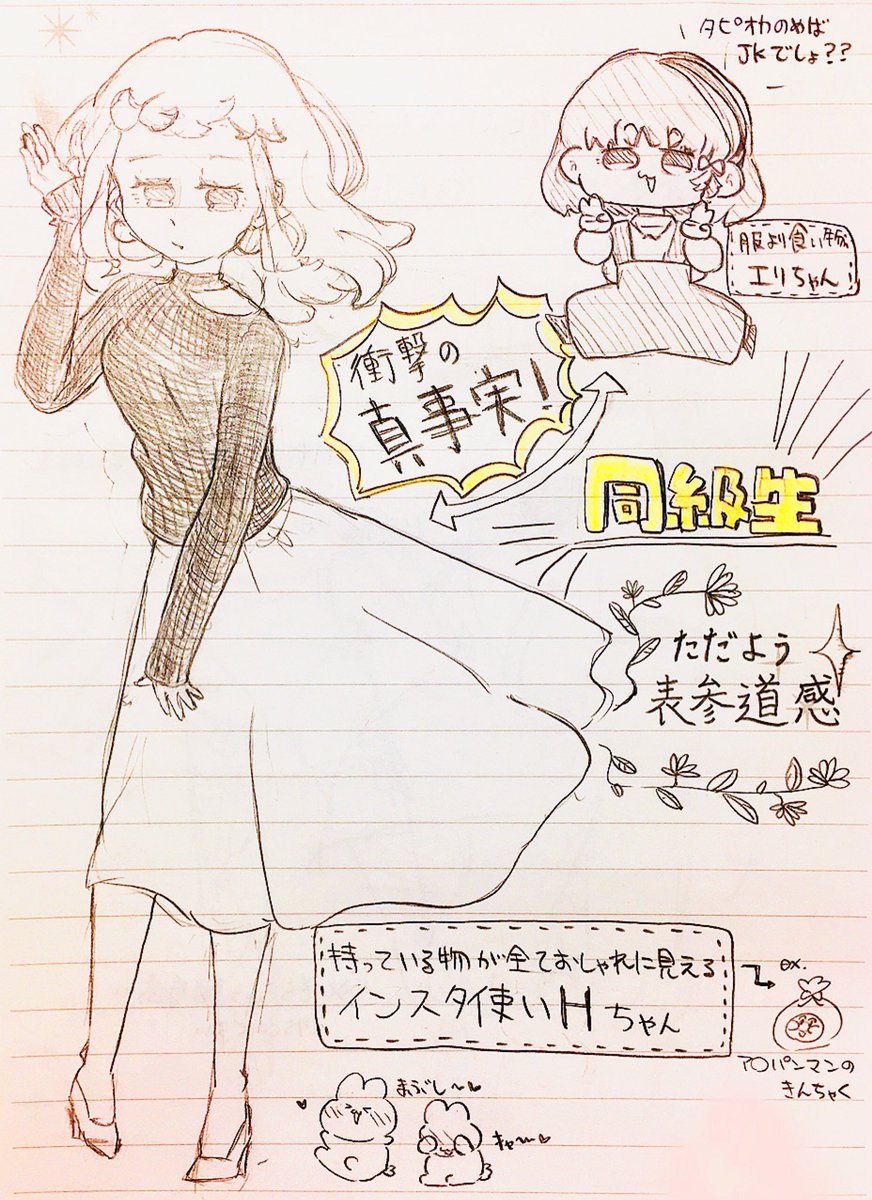 タピオカのめば
JKでしょ??
服より食い物
エリちゃん
衝撃の
真事実!
同級生
ただよう
表参道感
持っている物が全ておしゃれに見える
インスタ使いHちゃん
ex.
ア〇パンマンの
きんちゃく
まぶし〜♥
キャ〜♥